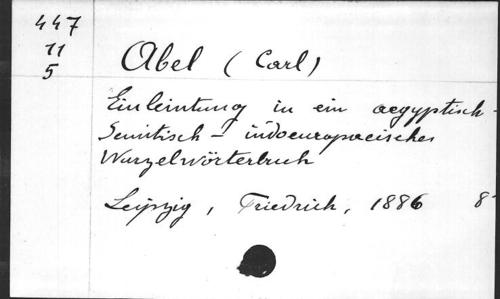 447
11
5
Abel (Carl)
Einleintung in ein aegyptisch-
Semitisch - indoeuropaeisches
Wurzelwörterbuch
Leipzig, Friedrich, 1886 8°